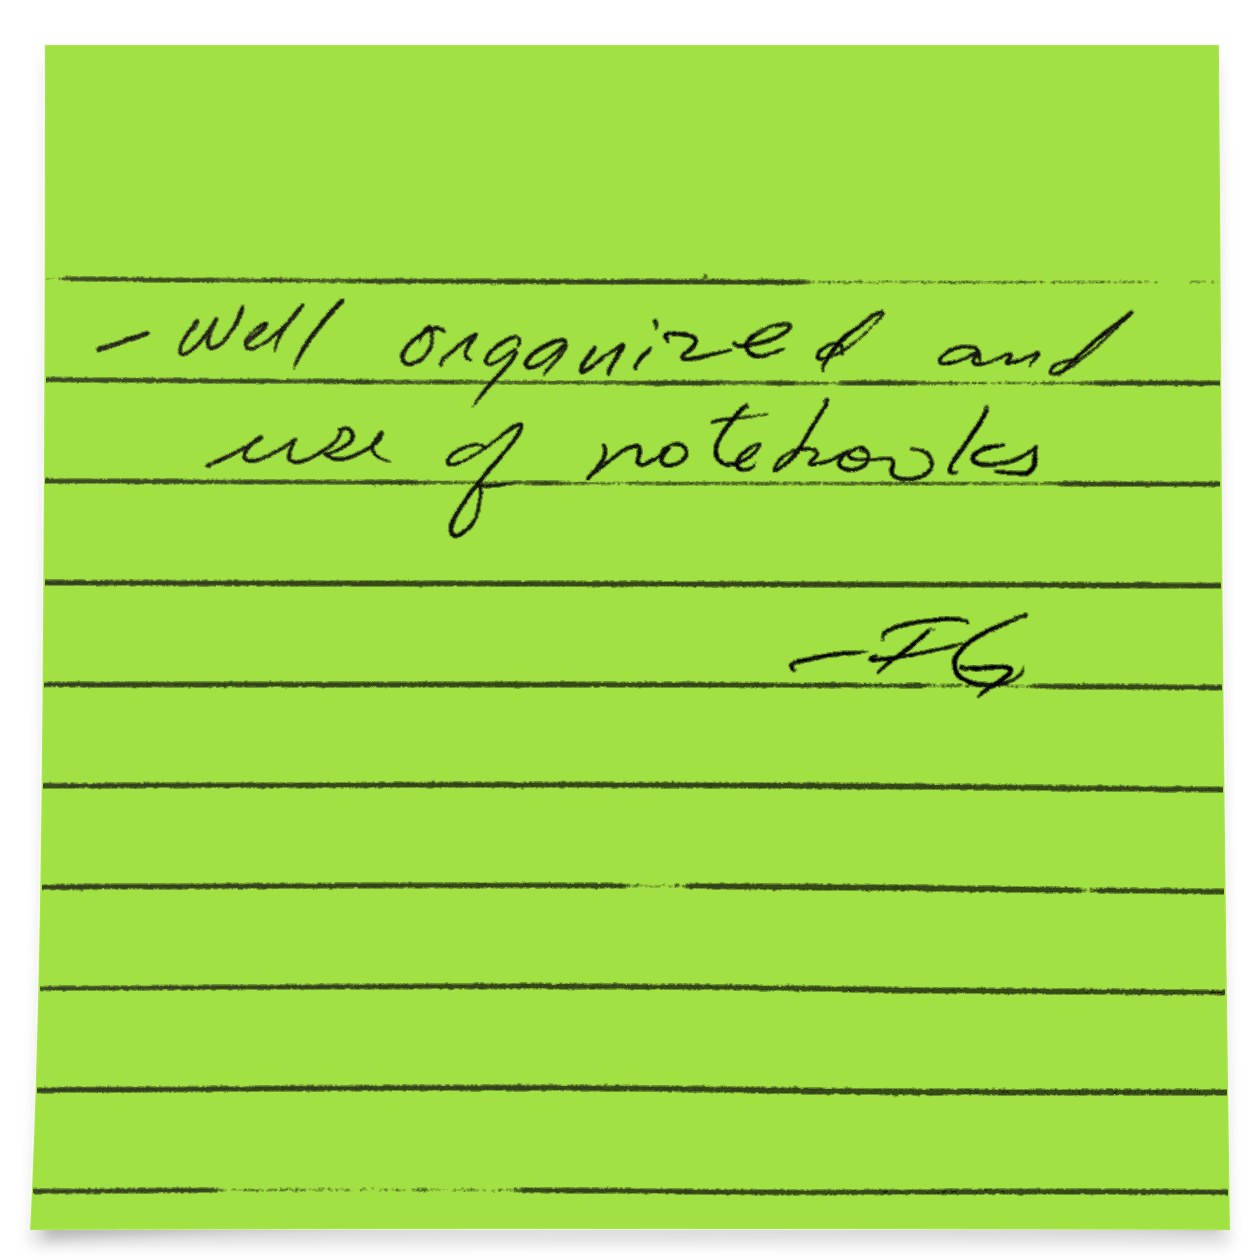 - Well organized and
use of notebooks
- IG